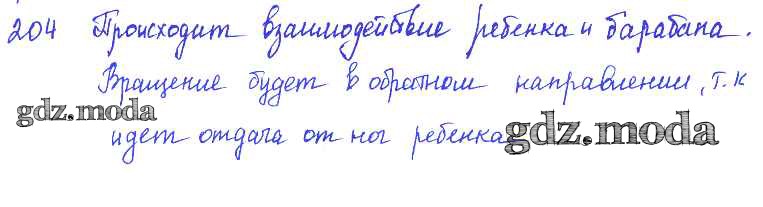 204 Происходит взаимодействие ребенка и барабана.
Вращение будет в обратном направлении, т.к
gdz.moda
идет отдача от ног ребенка gdz.moda